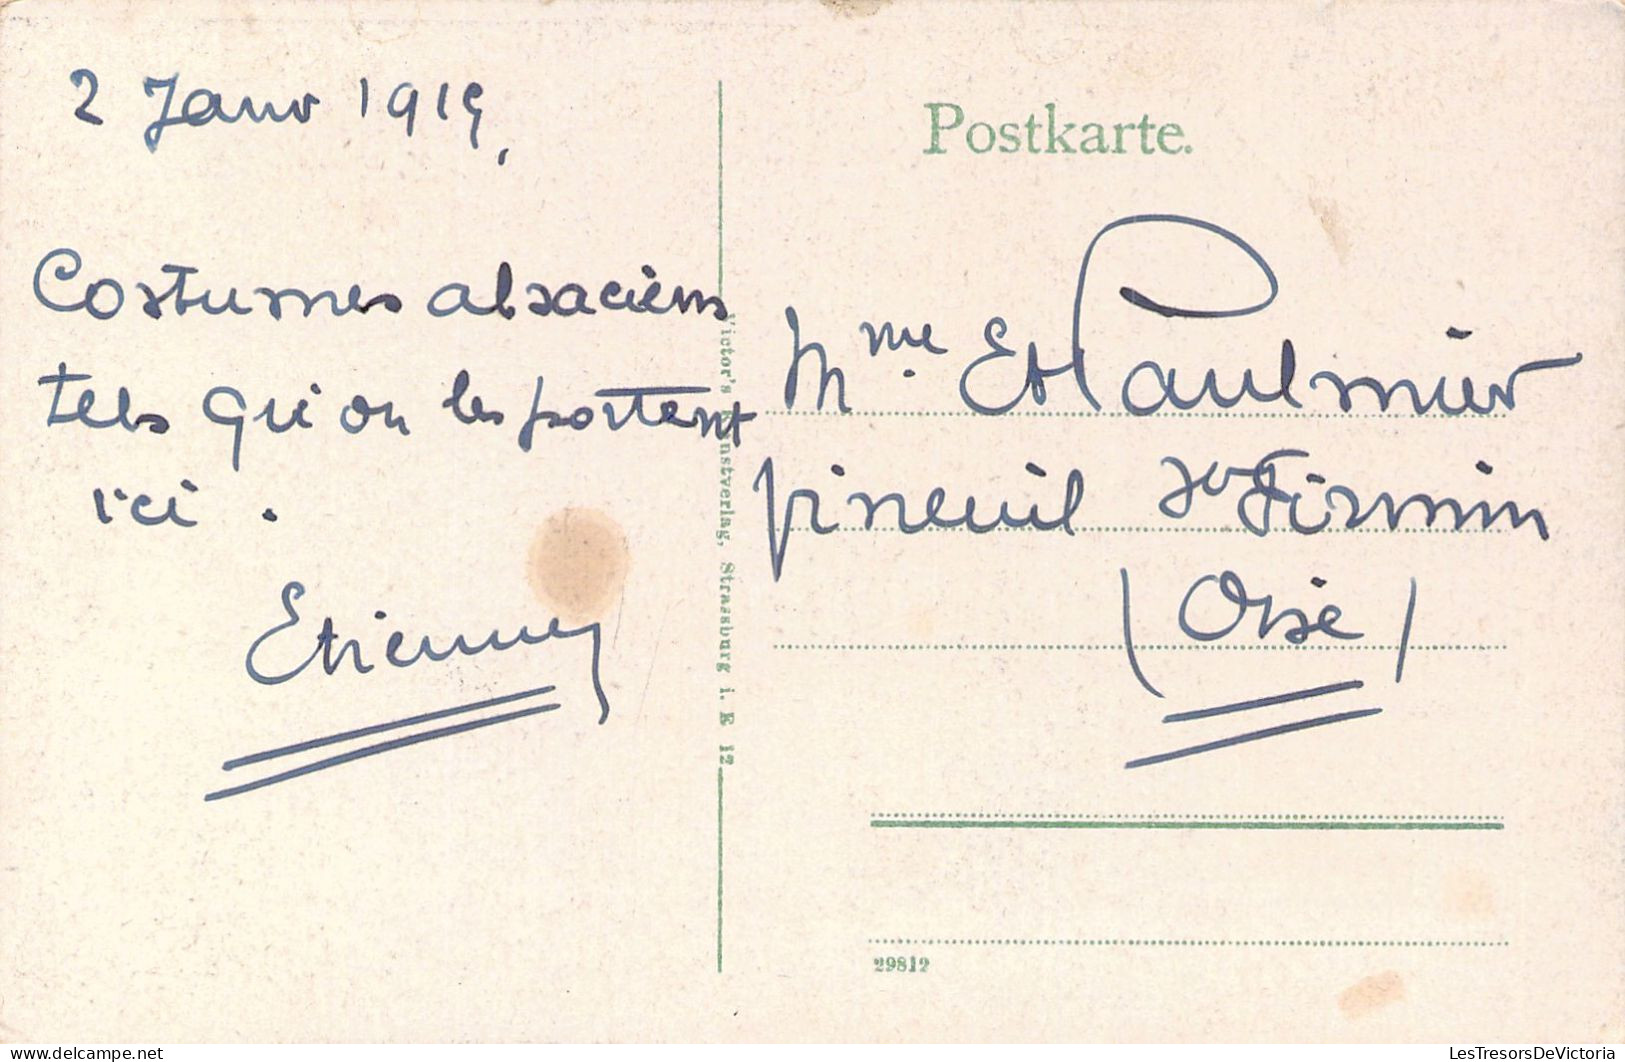 2 Janv 1919.
Costumes alsaciens
tels qu'on les portent
ici.
Etienne
Victor's Kunstverlag, Strassburg i. E 12
Postkarte.
Mme. Et Paulmier
Vineuil St Firmin
(Oise)
29812
LesTresorsDeVictoria
www.delcampe.net